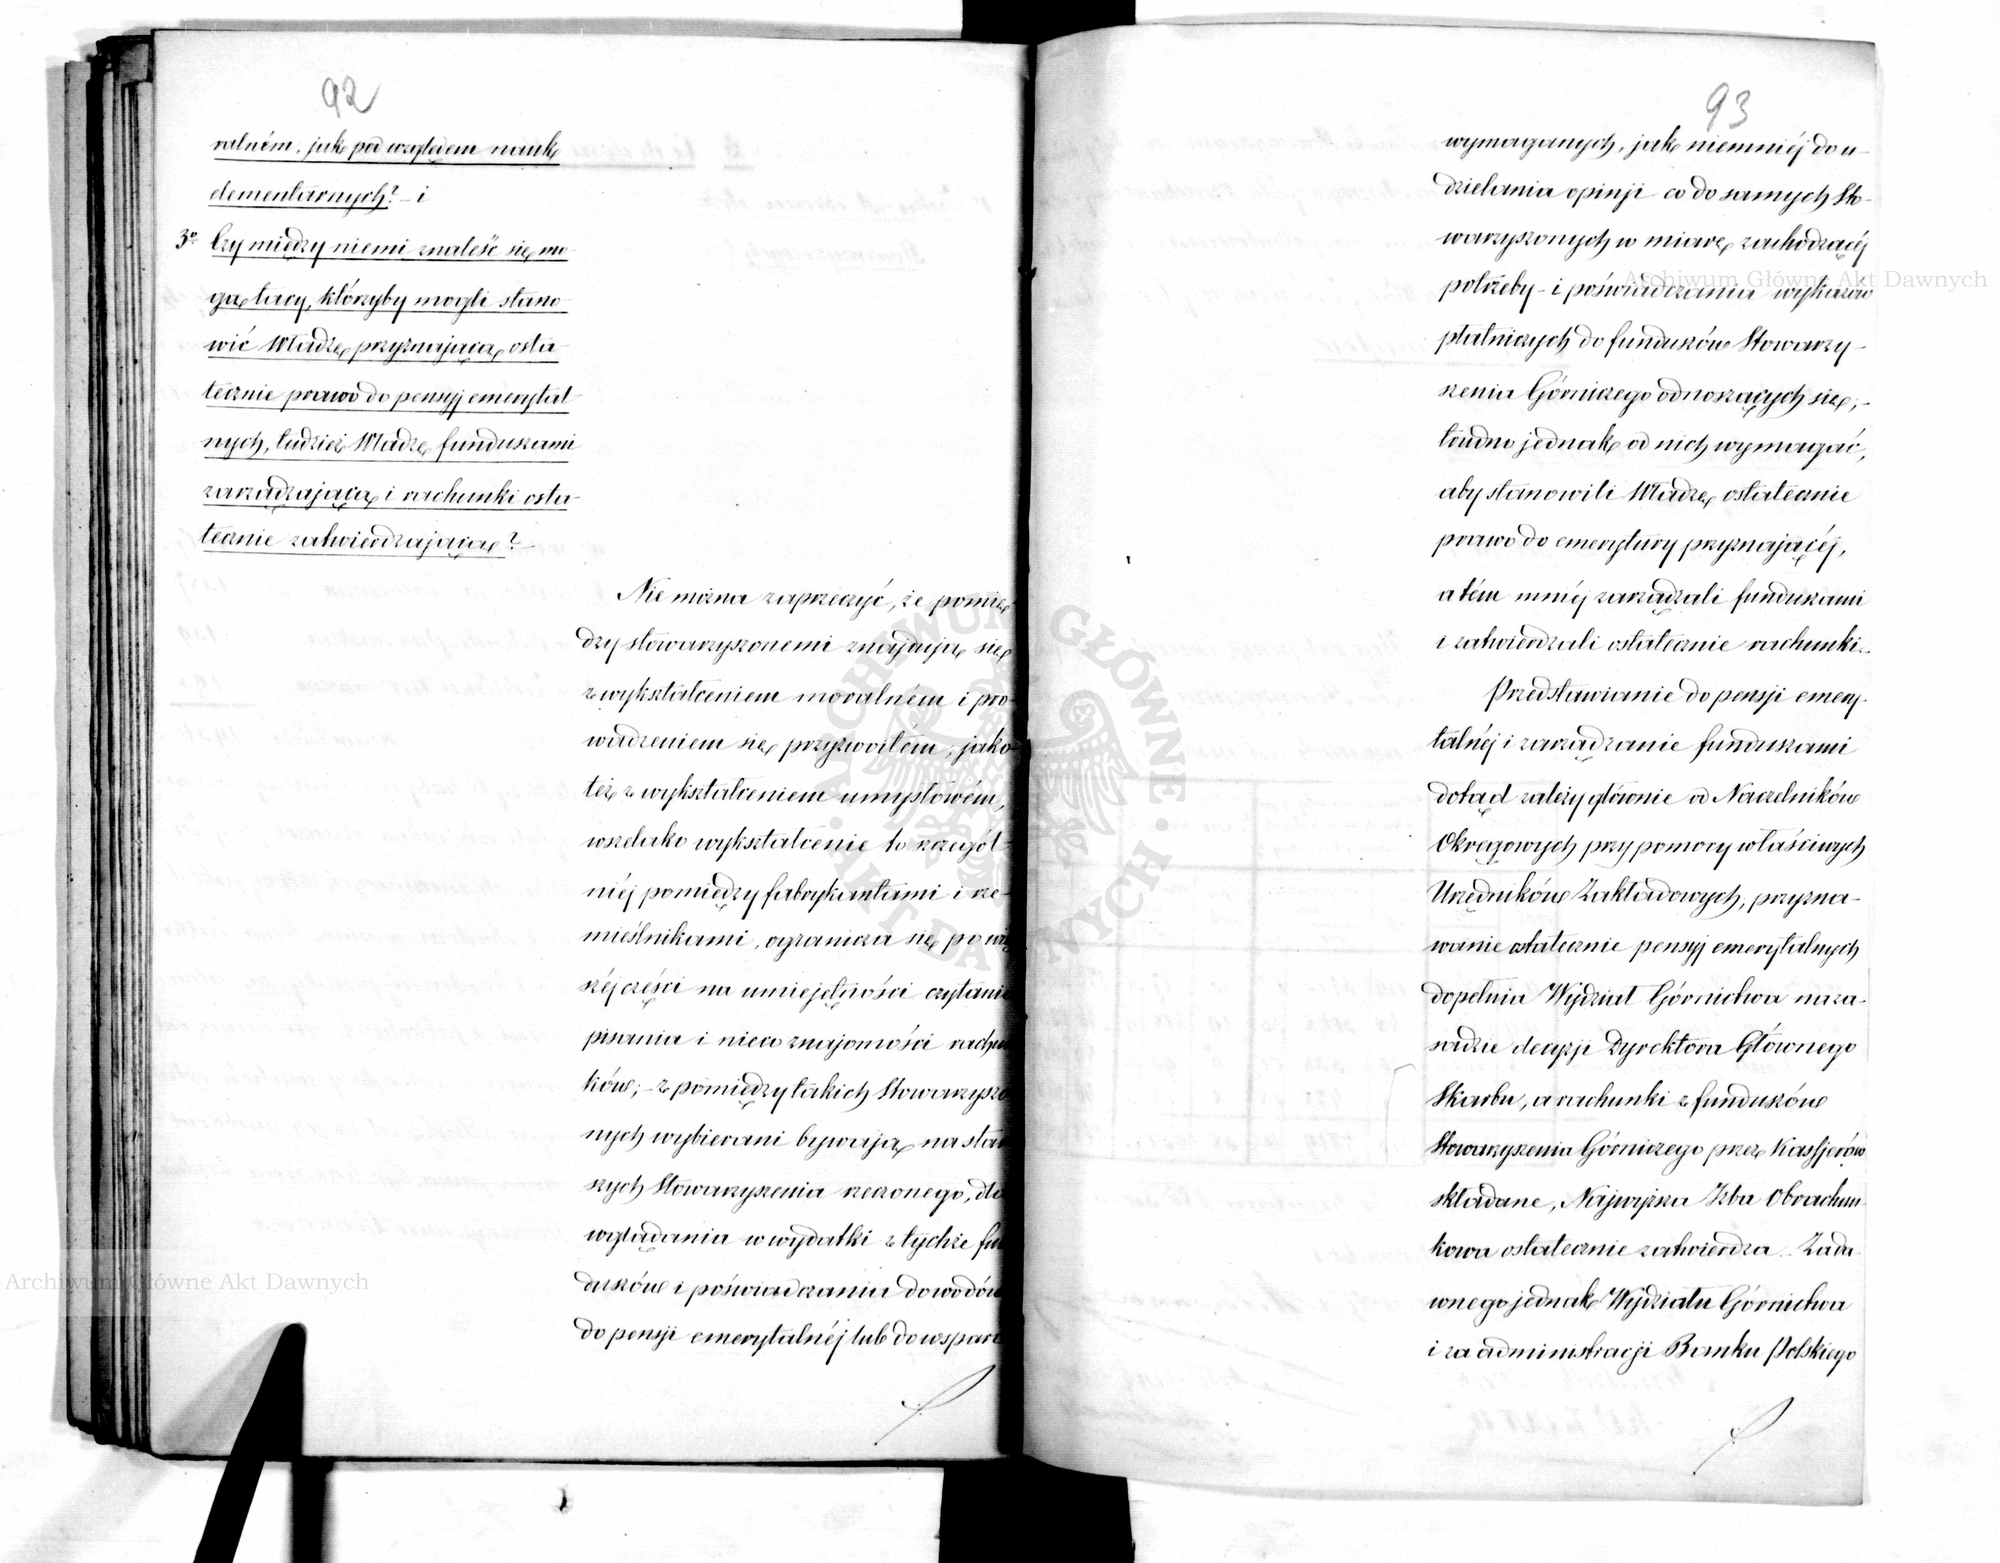 92
ralném, jak pod względem nauk
elementarnych? – i
3º Czy między niemi znaleść się mo-
gą tacy, którzyby mogli stano-
wić Władzę przyznającą osta-
tecznie prawo do pensyj emerytal-
nych, tudzież Władzę funduszami
zarządzającą i rachunki osta-
tecznie zatwierdzającą? –
Nie można zaprzeczyć, że pomię-
dzy stowarzyszonemi znajdują się
z wykształceniem moralném i pro-
wadzeniem się przyzwoitém, jako
też z wykształceniem umysłowém,
wszelako wykształcenie to szczegól-
niéj pomiędzy fabrykantami i rze-
mieślnikami, ogranicza się po wię
széj części na umiejętności czytania
pisania i nieco znajomości rachun
ków; – z pomiędzy takich Stowarzyszo
nych wybierani bywają na star
szych Stowarzyszenia rzeczonego, dla
wglądania w wydatki z tychże fun
duszów i poświadczania dowodów
do pensji emerytalnéj lub do wsparc
93
wymaganych, jak niemniéj do u-
dzielania opinji co do samych Sto-
warzyszonych w miarę zachodzącéj
potrzeby – i poświadczania wykazów
płatniczych do funduszów Stowarzy-
szenia Górniczego odnoszących się; –
trudno jednak od nich wymagać,
aby stanowili Władzę ostatecznie
prawo do emerytury przyznającéj,
a tém mniéj zarządzali funduszami
i zatwierdzali ostatecznie rachunki. –
Przedstawianie do pensji emery-
talnéj i zarządzanie funduszami
dotąd zależy głównie od Naczelników
Okręgowych przy pomocy właściwych
Urzędników Zakładowych, przyzna-
wanie ostatecznie pensyj emerytalnych
dopełnia Wydział Górnictwa na za-
sadzie decyzji Dyrektora Głównego
Skarbu, a rachunki z funduszów
Stowarzyszenia Górniczego przez Kassjerów
składane, Najwyższa Izba Obrachun-
kowa ostatecznie zatwierdza. – Zada-
wnego jednak Wydziału Górnictwa
i za administracji Banku Polskiego
Archiwum Główne Akt Dawnych
Archiwum Główne Akt Dawnych
ARCHIWUM GŁÓWNE AKT DAWNYCH